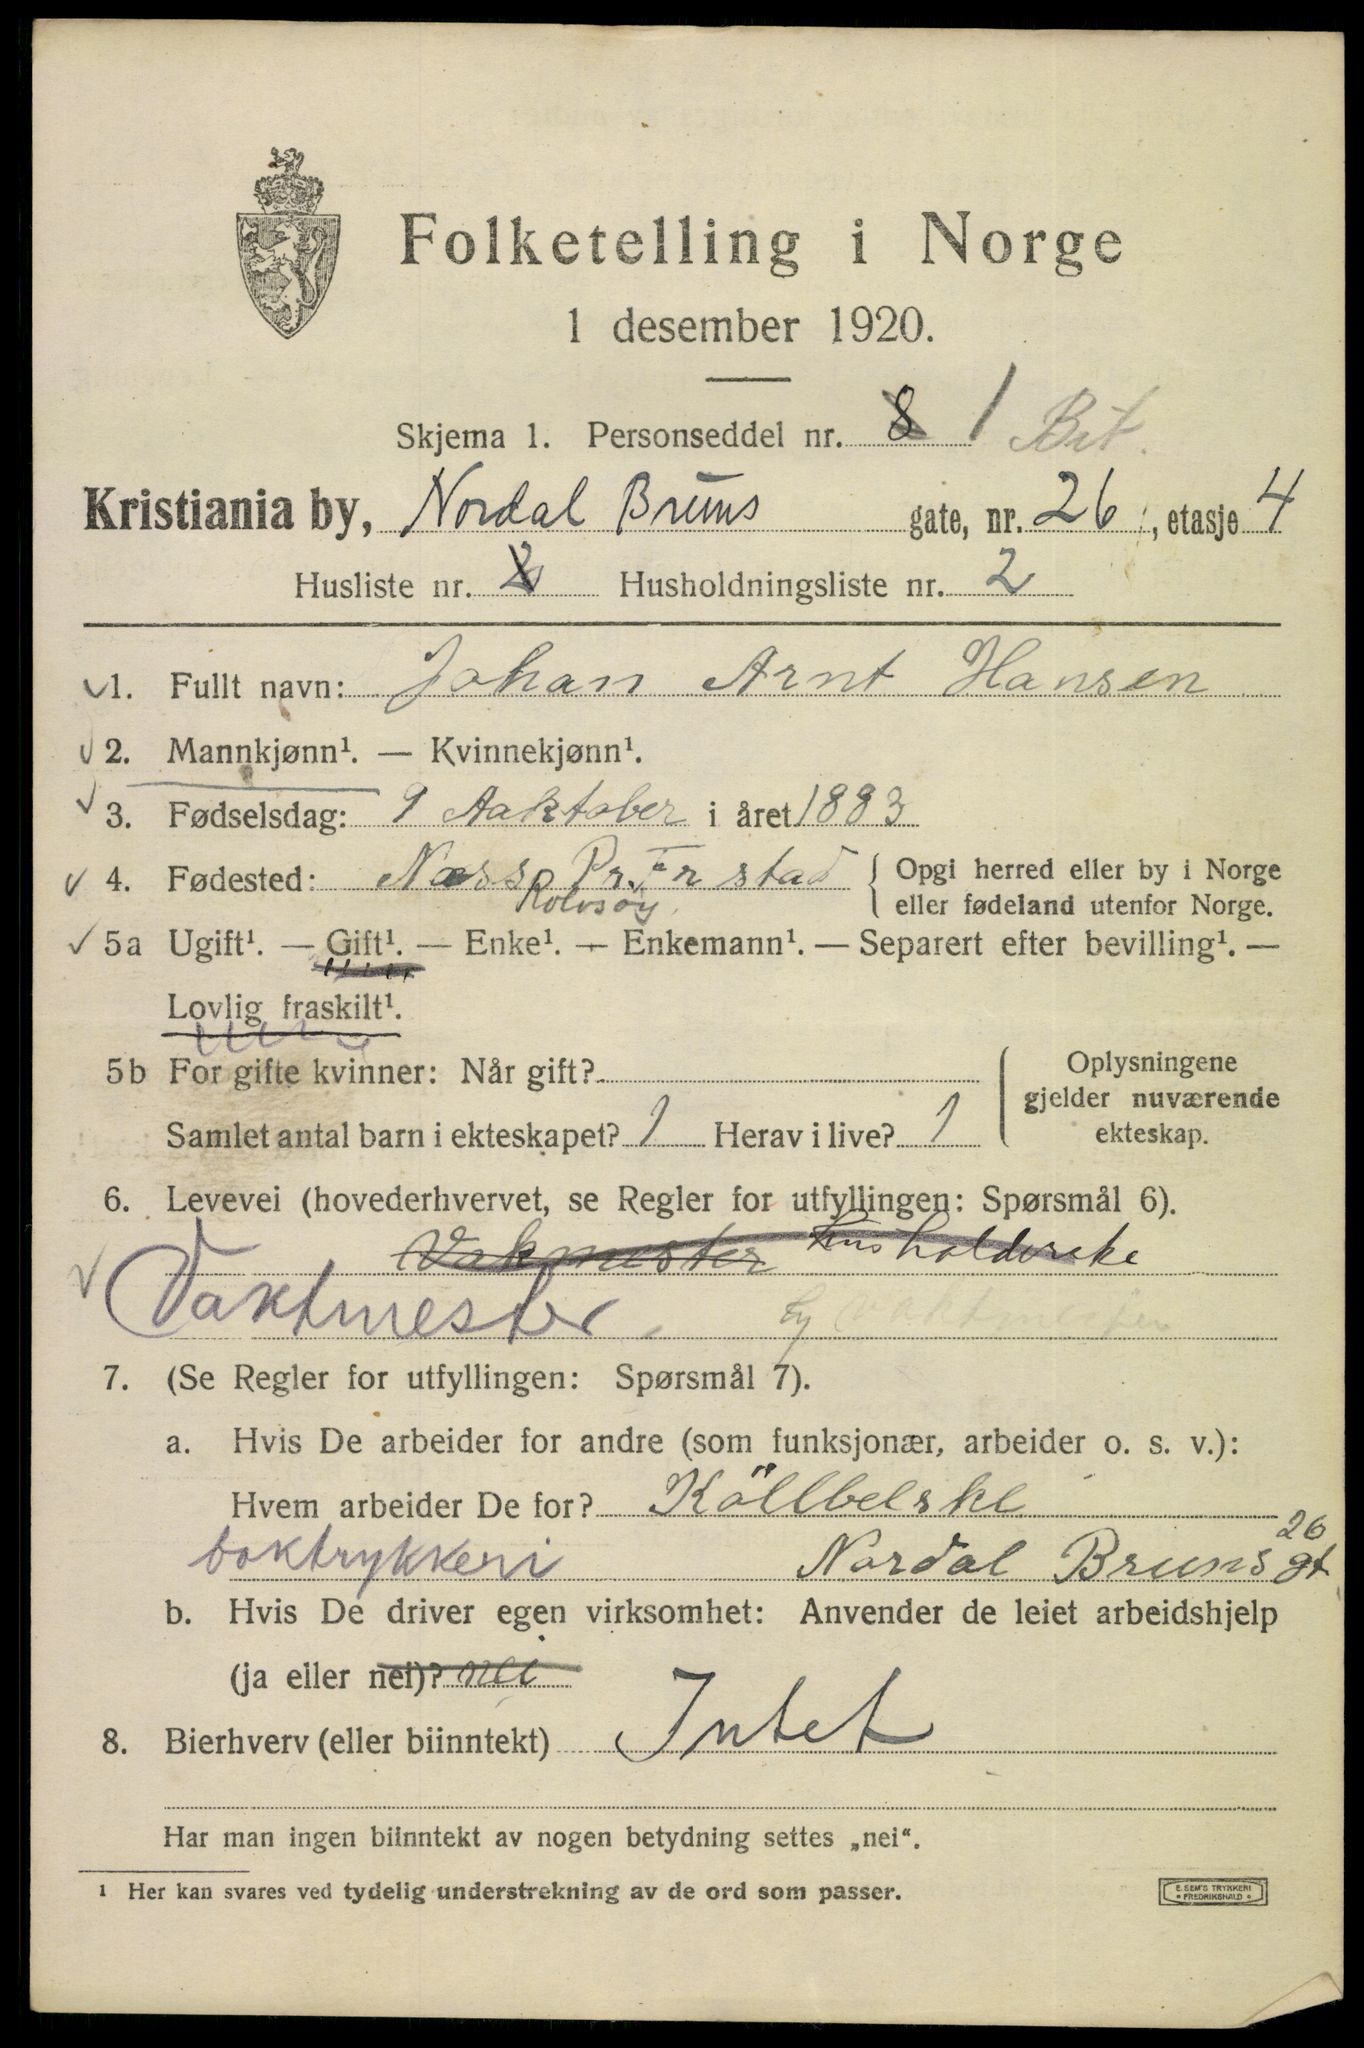 Folketelling i Norge
1 desember 1920.
Skjema 1. Personseddel nr. 8 1 Bit.
Kristiania by, Nordal Bruns gate, nr. 26, etasje 4
Husliste nr. 2 Husholdningsliste nr. 2
1. Fullt navn: Johan Arnt Hansen
2. Mannkjønn¹. — Kvinnekjønn¹.
3. Fødselsdag: 9 Aaktober i året 1883
4. Fødested: Næss Pr. Fr stad { Opgi herred eller by i Norge
Rolvsøy eller fødeland utenfor Norge.
5a Ugift¹. — Gift¹. — Enke¹. — Enkemann¹. — Separert efter bevilling¹. —
Lovlig fraskilt¹.
5b For gifte kvinner: Når gift?
Samlet antal barn i ekteskapet? 1 Herav i live? 1
Oplysningene
gjelder nuværende
ekteskap.
6. Levevei (hovederhvervet, se Regler for utfyllingen: Spørsmål 6).
Vakmester
Vaktmester
7. (Se Regler for utfyllingen: Spørsmål 7).
a. Hvis De arbeider for andre (som funksjonær, arbeider o. s. v.):
Hvem arbeider De for? Köllbelske
boktrykkeri Nordal Bruns gt 26
b. Hvis De driver egen virksomhet: Anvender de leiet arbeidshjelp
(ja eller nei)? nei
8. Bierhverv (eller biinntekt) Intet
Har man ingen biinntekt av nogen betydning settes „nei“.
¹ Her kan svares ved tydelig understrekning av de ord som passer.
E. SEM'S TRYKKERI
FREDRIKSHALD